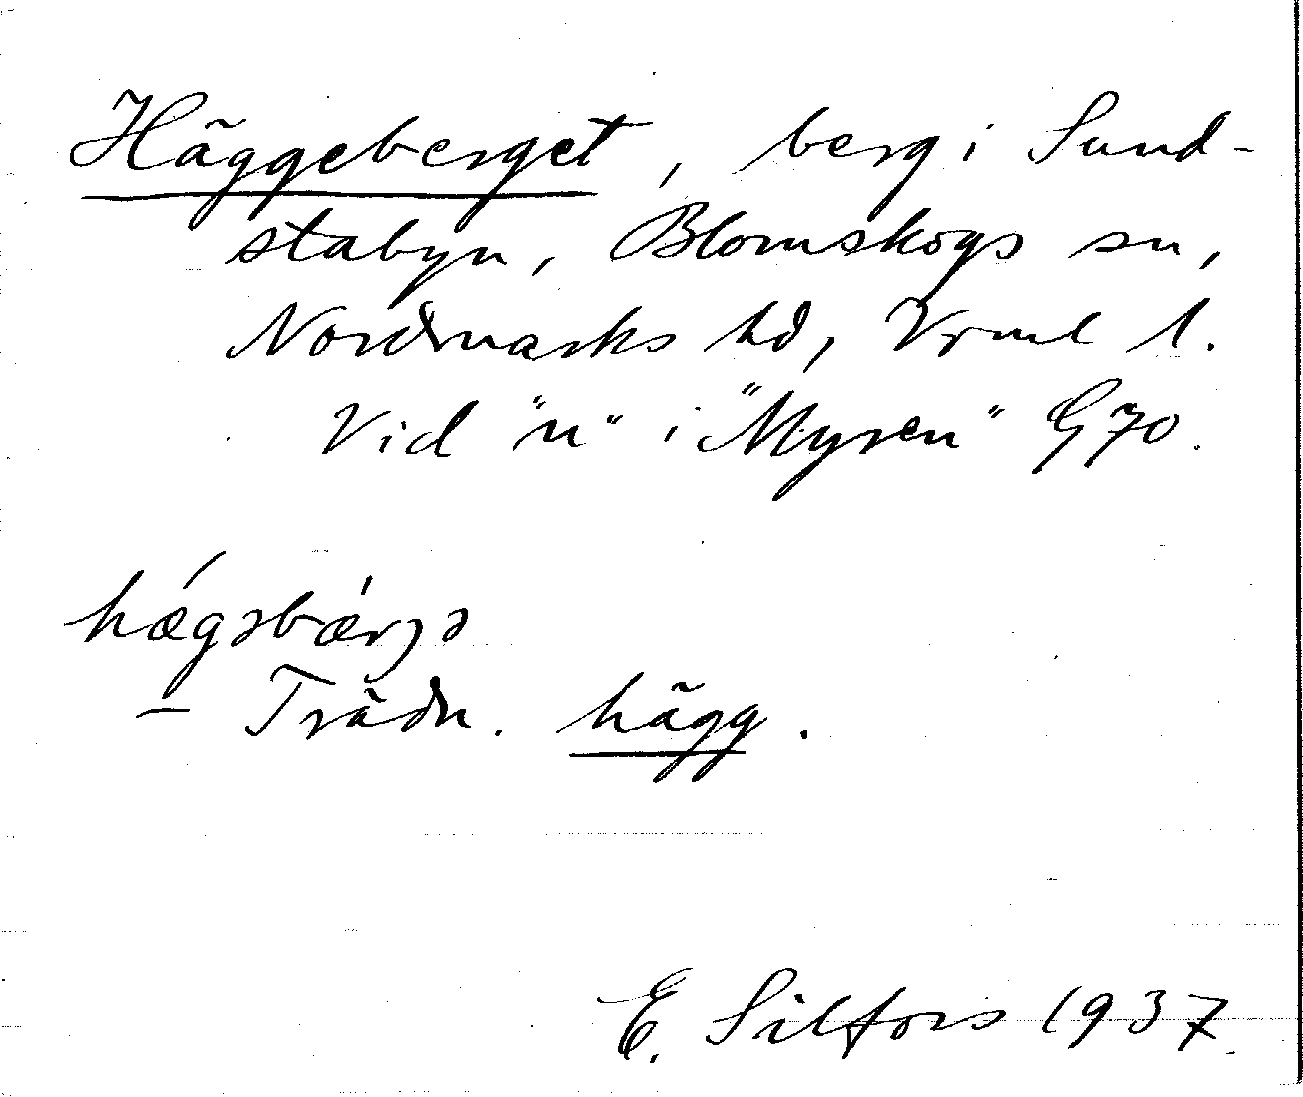 Häggeberget, berg i Sund-
stabyn, Blomskogs sn,
Nordmarks hd, Vrml l.
Vid "n" i "Myren" G70.
hǽgəbǽrjə
— Trädn. hägg.
E. Silfors 1937.